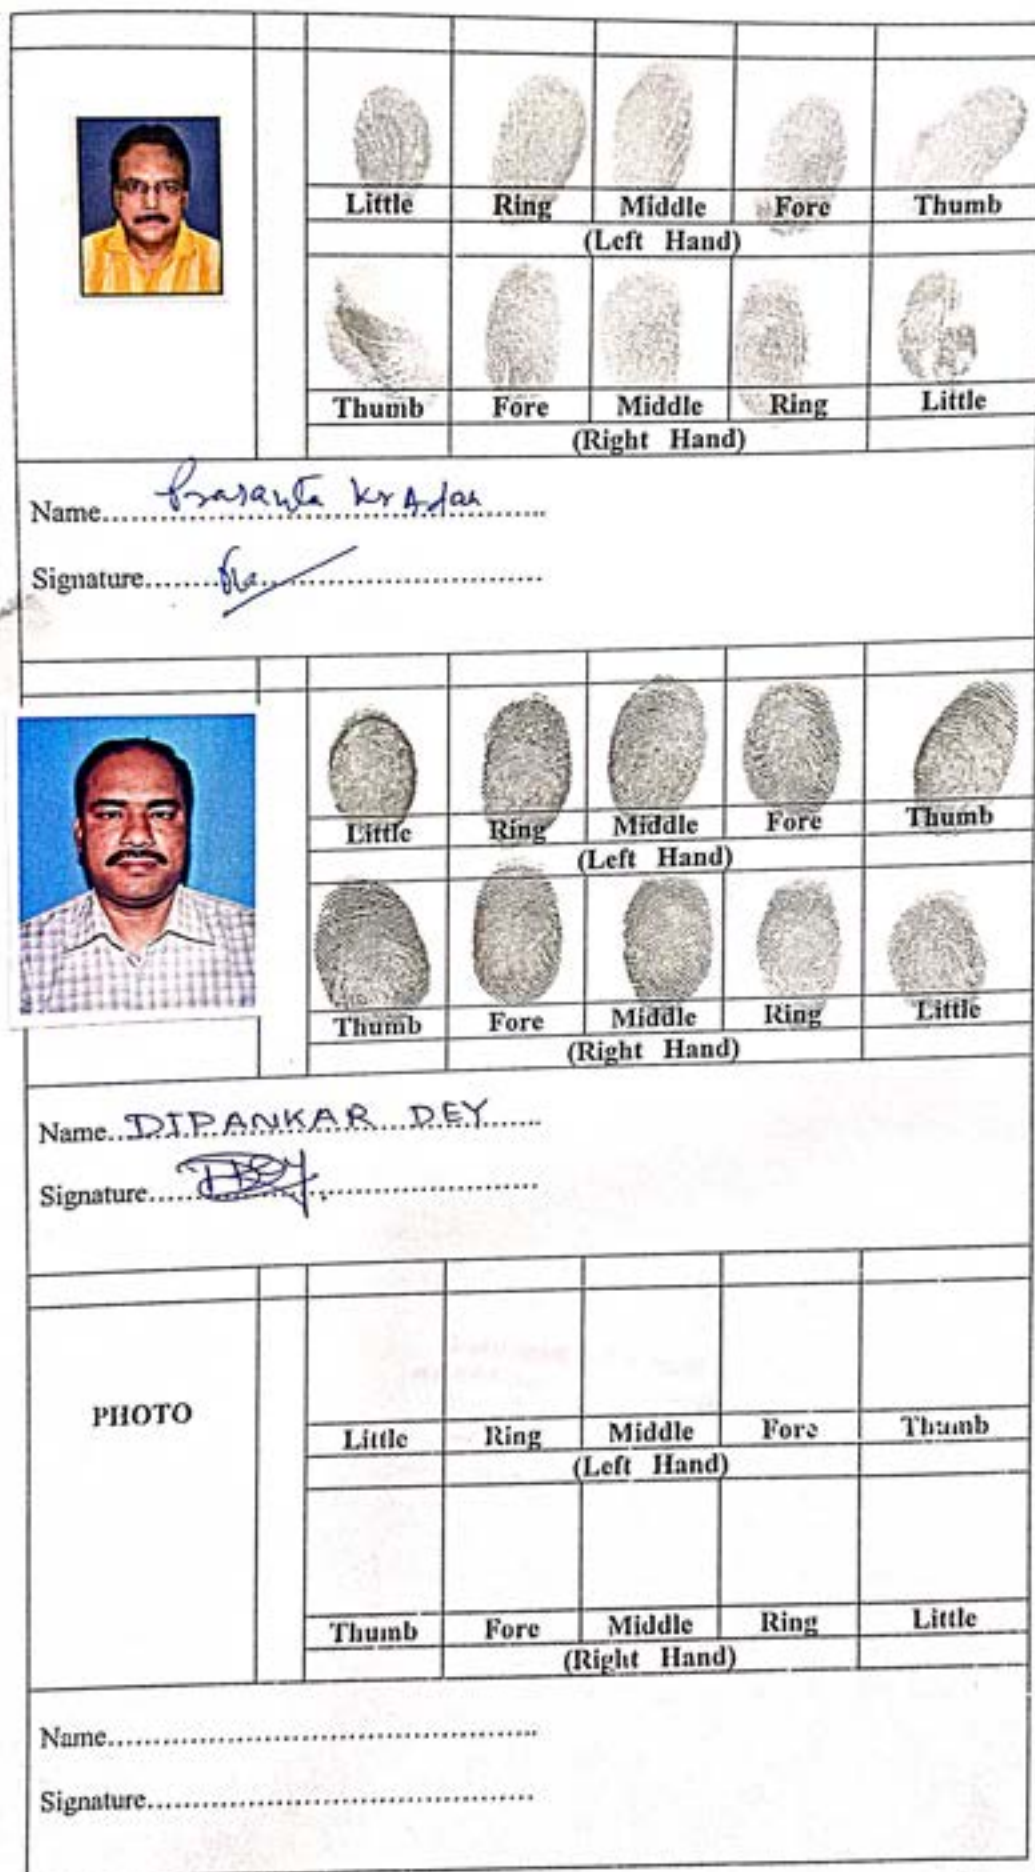 Little Ring Middle Fore Thumb
(Left Hand)
Thumb Fore Middle Ring Little
(Right Hand)
Name.......Prasanta Kr Adak
Signature.......
Little Ring Middle Fore Thumb
(Left Hand)
Thumb Fore Middle Ring Little
(Right Hand)
Name..DIPANKAR DEY.......
Signature.....DDey.
PHOTO
Little Ring Middle Fore Thumb
(Left Hand)
Thumb Fore Middle Ring Little
(Right Hand)
Name.......
Signature.......